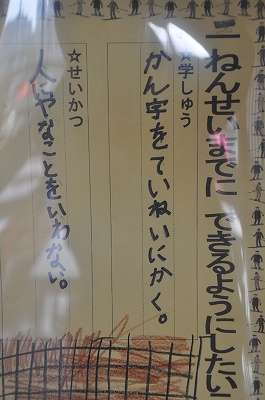 二ねんせいまでに できるようにしたい
☆学しゅう
かん字をていねいにかく。
☆せいかつ
人にいやなことをいわない。